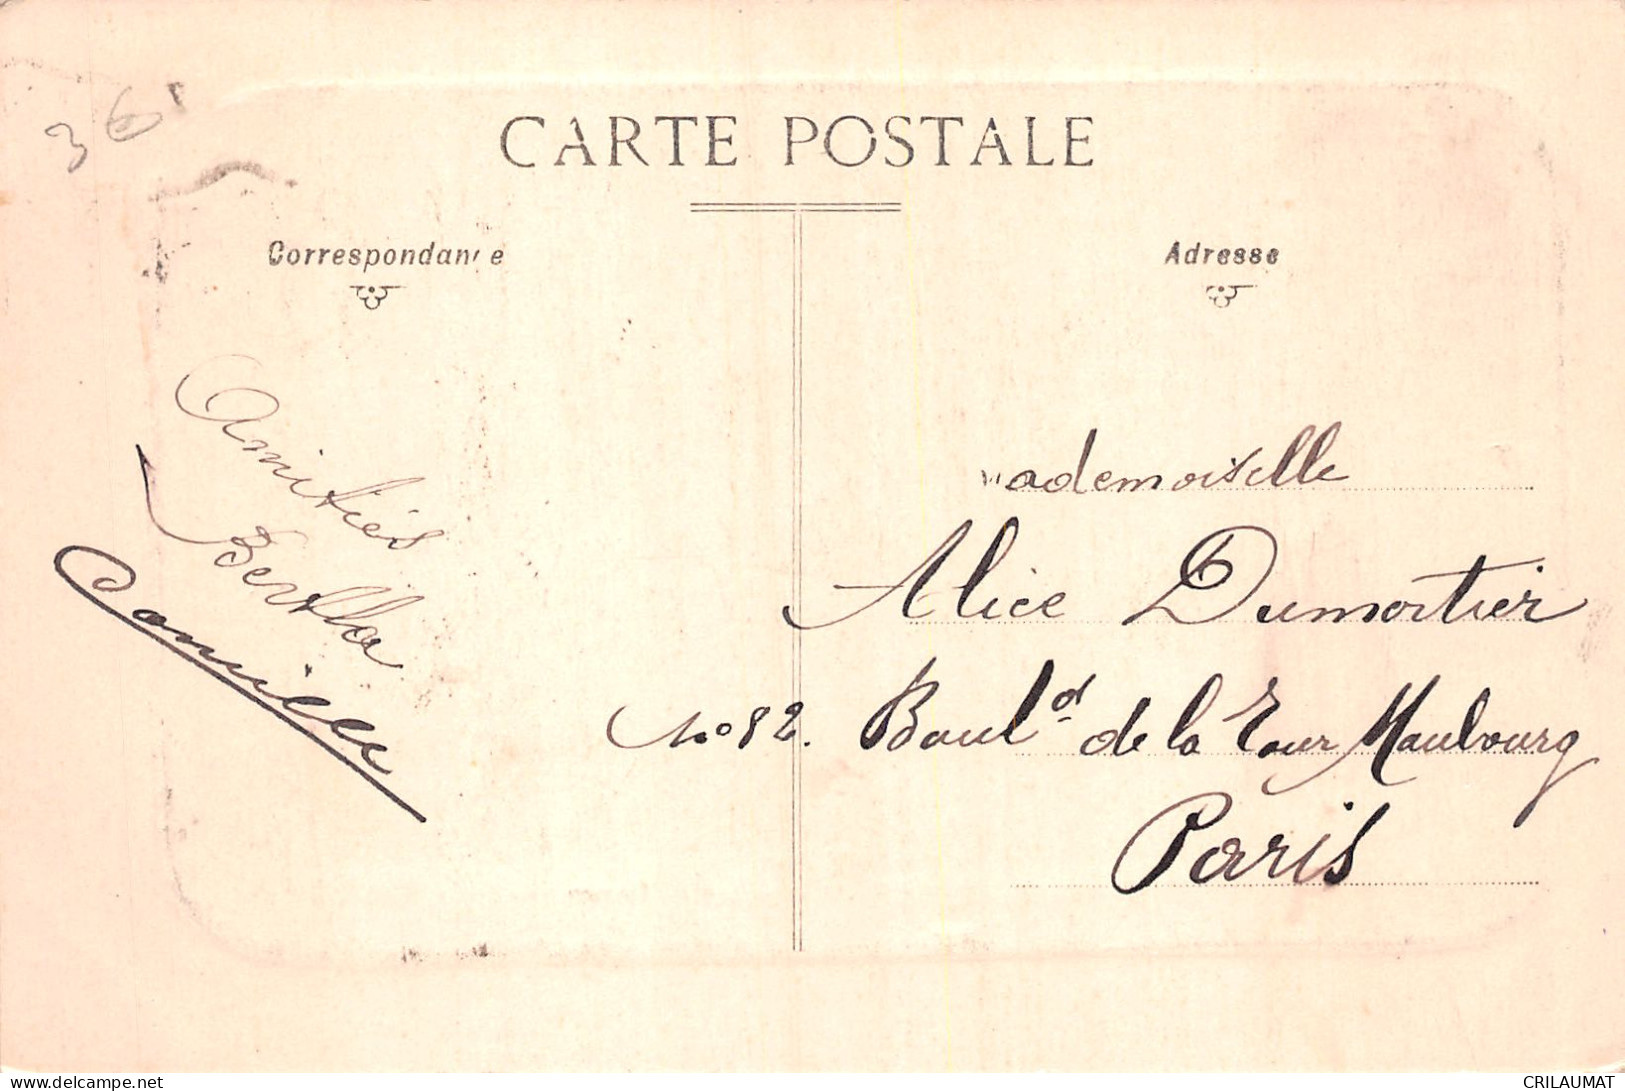 36
CARTE POSTALE
Correspondance
Adresse
Amitiés
Bertha
Camille
Mademoiselle
Alice Dumortier
No 82. Boul^d de la Tour Maubourg
Paris
delcampe.net
CRILAUMAT